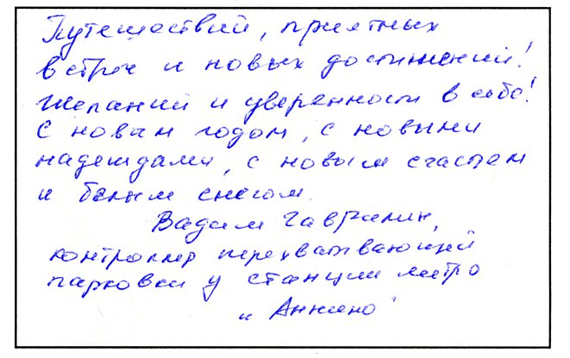 Путешествий, приятных
встреч и новых достижений!
Желаний и уверенности в себе!
С новым годом, с новыми
надеждами, с новым счастьем
и белым снегом.
Вадим Гаврилин,
контролер перехватывающей
парковки у станции метро
„Аннино"